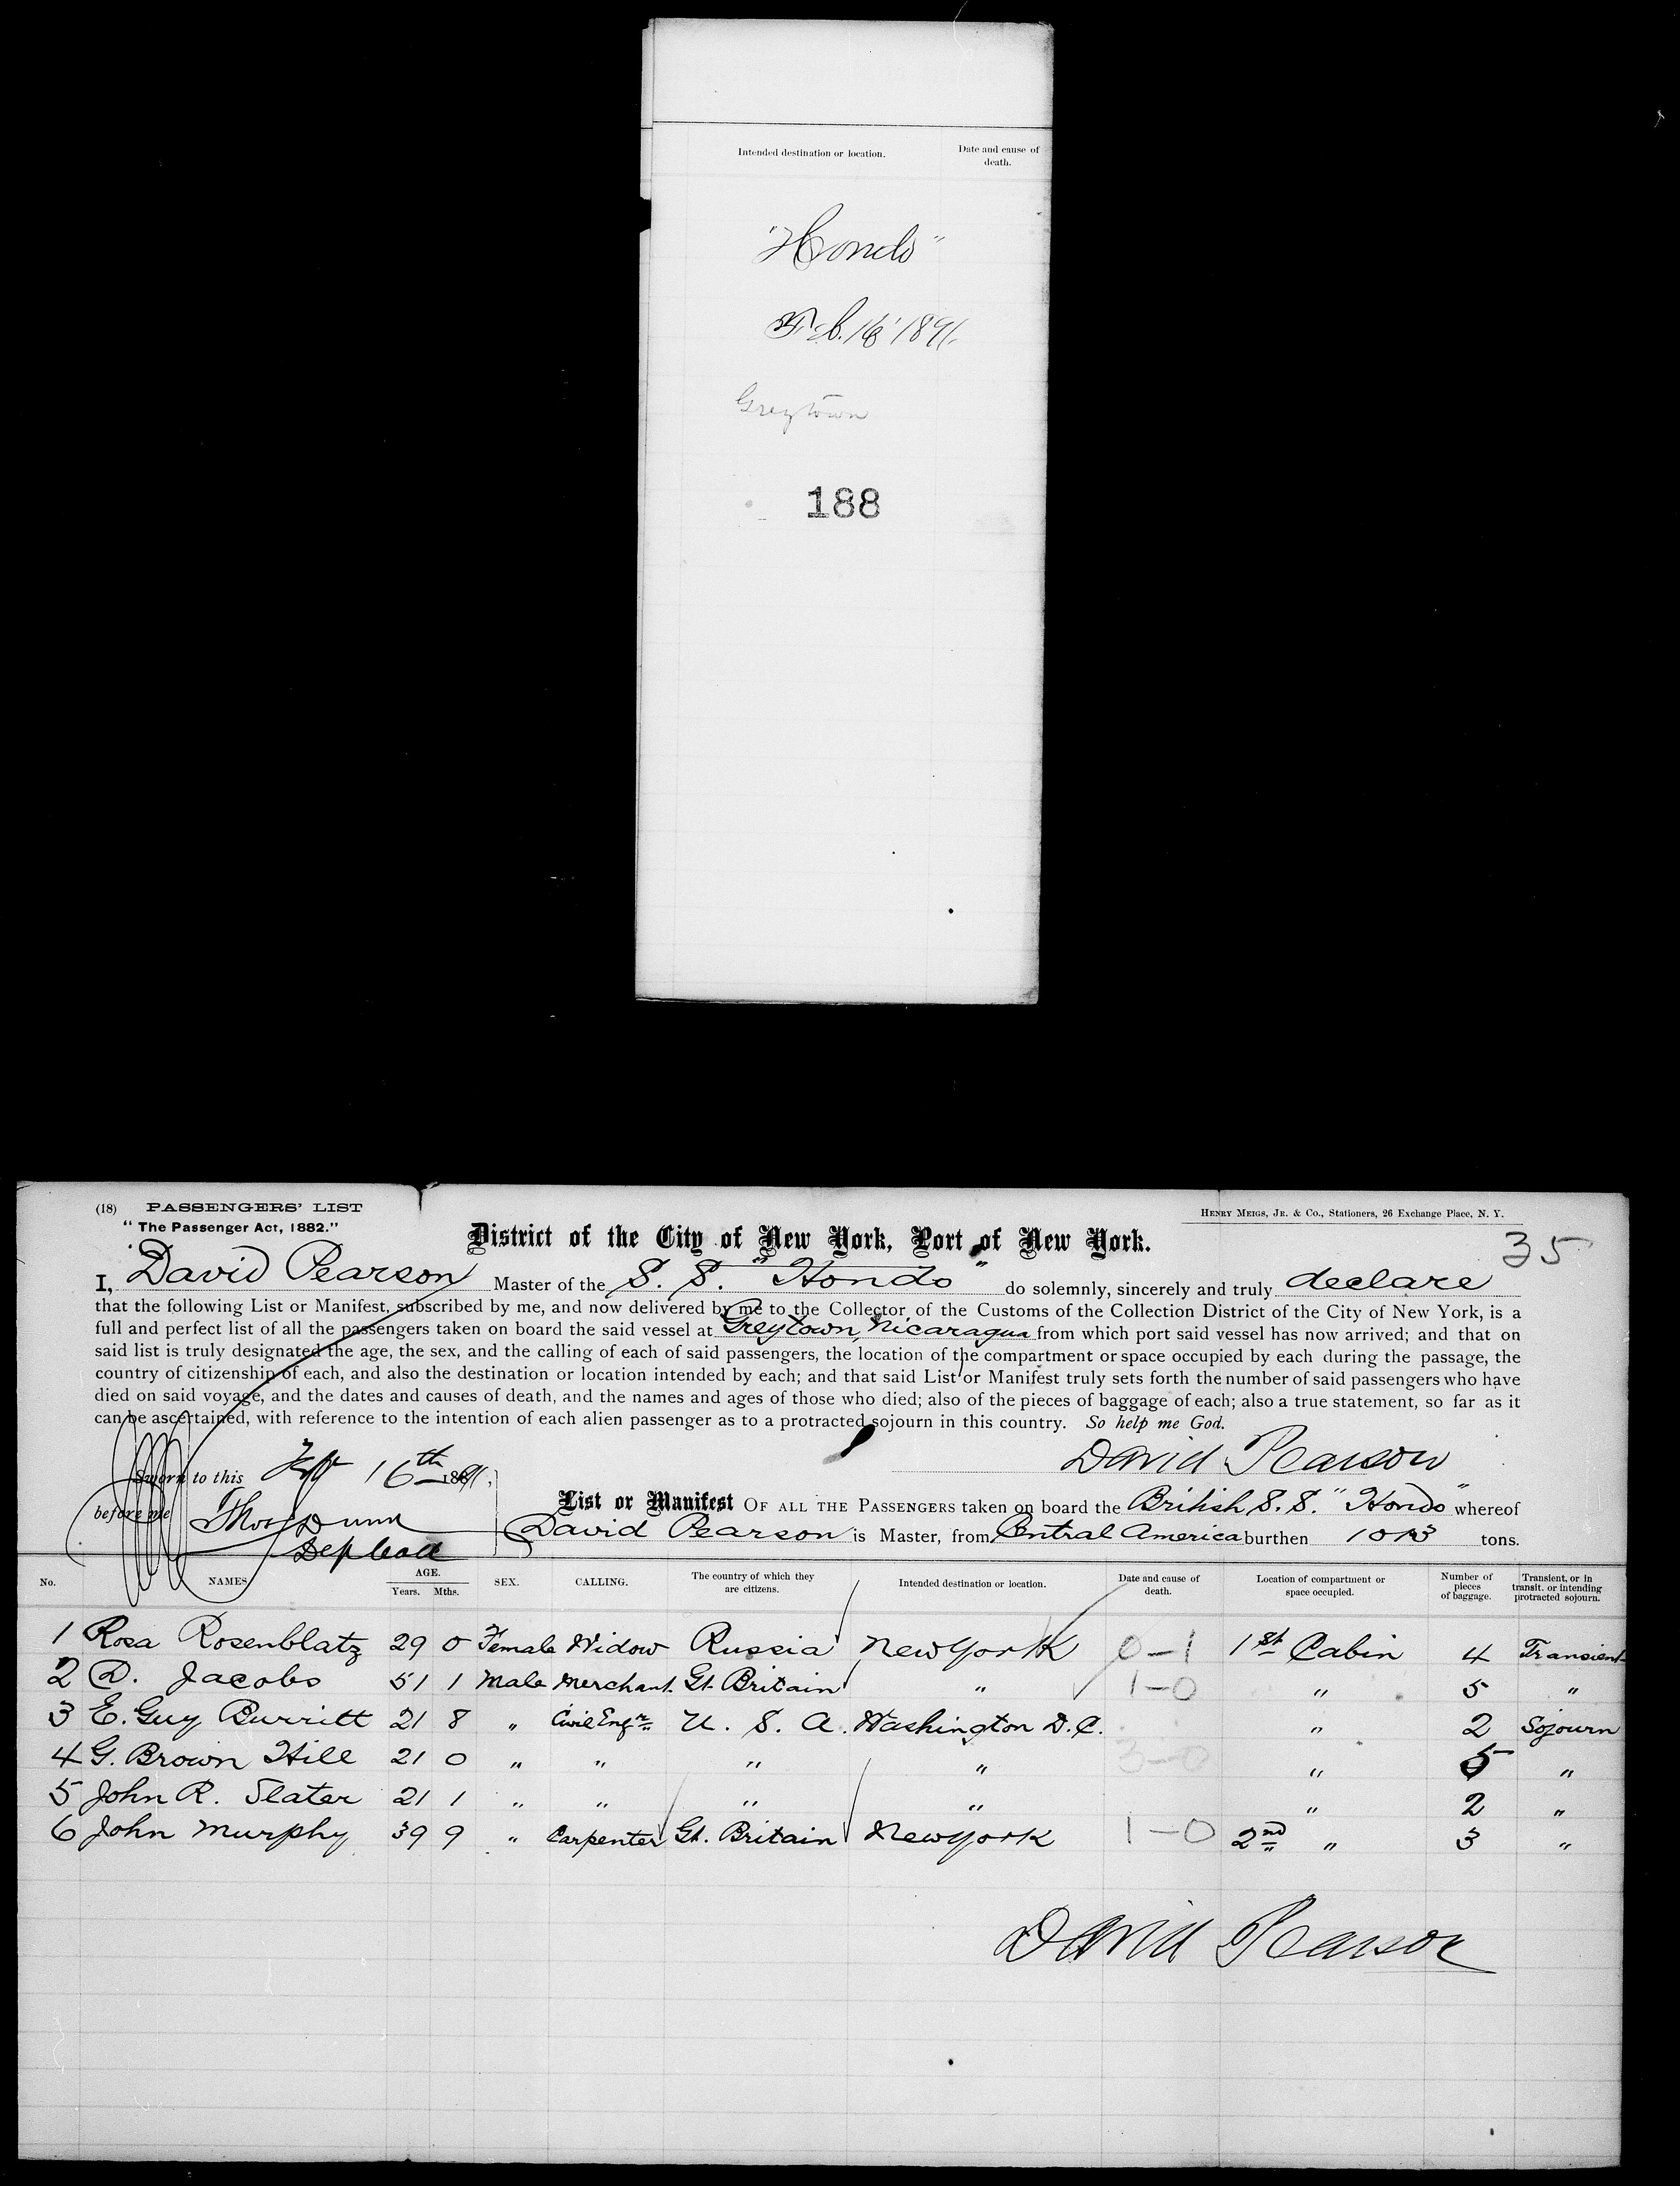 Intended destination or location. Date and cause of death.
"Hondo"
Feb. 16' 1891.
Greytown
188
(18) PASSENGERS' LIST
"The Passenger Act, 1882."
HENRY MEIGS, JR. & CO., Stationers, 26 Exchange Place, N. Y.
District of the City of New York, Port of New York.
35
I, David Pearson Master of the S. S. "Hondo" do solemnly, sincerely and truly declare
that the following List or Manifest, subscribed by me, and now delivered by me to the Collector of the Customs of the Collection District of the City of New York, is a
full and perfect list of all the passengers taken on board the said vessel at Greytown, Nicaragua from which port said vessel has now arrived; and that on
said list is truly designated the age, the sex, and the calling of each of said passengers, the location of the compartment or space occupied by each during the passage, the
country of citizenship of each, and also the destination or location intended by each; and that said List or Manifest truly sets forth the number of said passengers who have
died on said voyage, and the dates and causes of death, and the names and ages of those who died; also of the pieces of baggage of each; also a true statement, so far as it
can be ascertained, with reference to the intention of each alien passenger as to a protracted sojourn in this country. So help me God.
David Pearson
Sworn to this 16th 1891.
before me Thos Dunn
Dep
List or Manifest OF ALL THE PASSENGERS taken on board the British S. S. "Hondo" whereof
David Pearson is Master, from Central America burthen tons.
No. NAMES. AGE. Years. Mths. SEX. CALLING. The country of which they are citizens. Intended destination or location. Date and cause of death. Location of compartment or space occupied. Number of pieces of baggage. Transient, or in transit, or intending protracted sojourn.
1 Rosa Rosenblatz 29 0 Female Widow Russia New York 0-1 1st Cabin 4 Transient
2 D. Jacobs 51 1 Male Merchant Gt. Britain " 1-0 " 5 "
3 E. Guy Burritt 21 8 " Civil Engr. U. S. A. Washington D.C. " 2 Sojourn
4 G. Brown Hill 21 0 " " " " 3-0 " 5 "
5 John R. Slater 21 1 " " " " " 2 "
6 John Murphy 39 9 " Carpenter Gt. Britain New York 1-0 2nd " 3 "
David Pearson